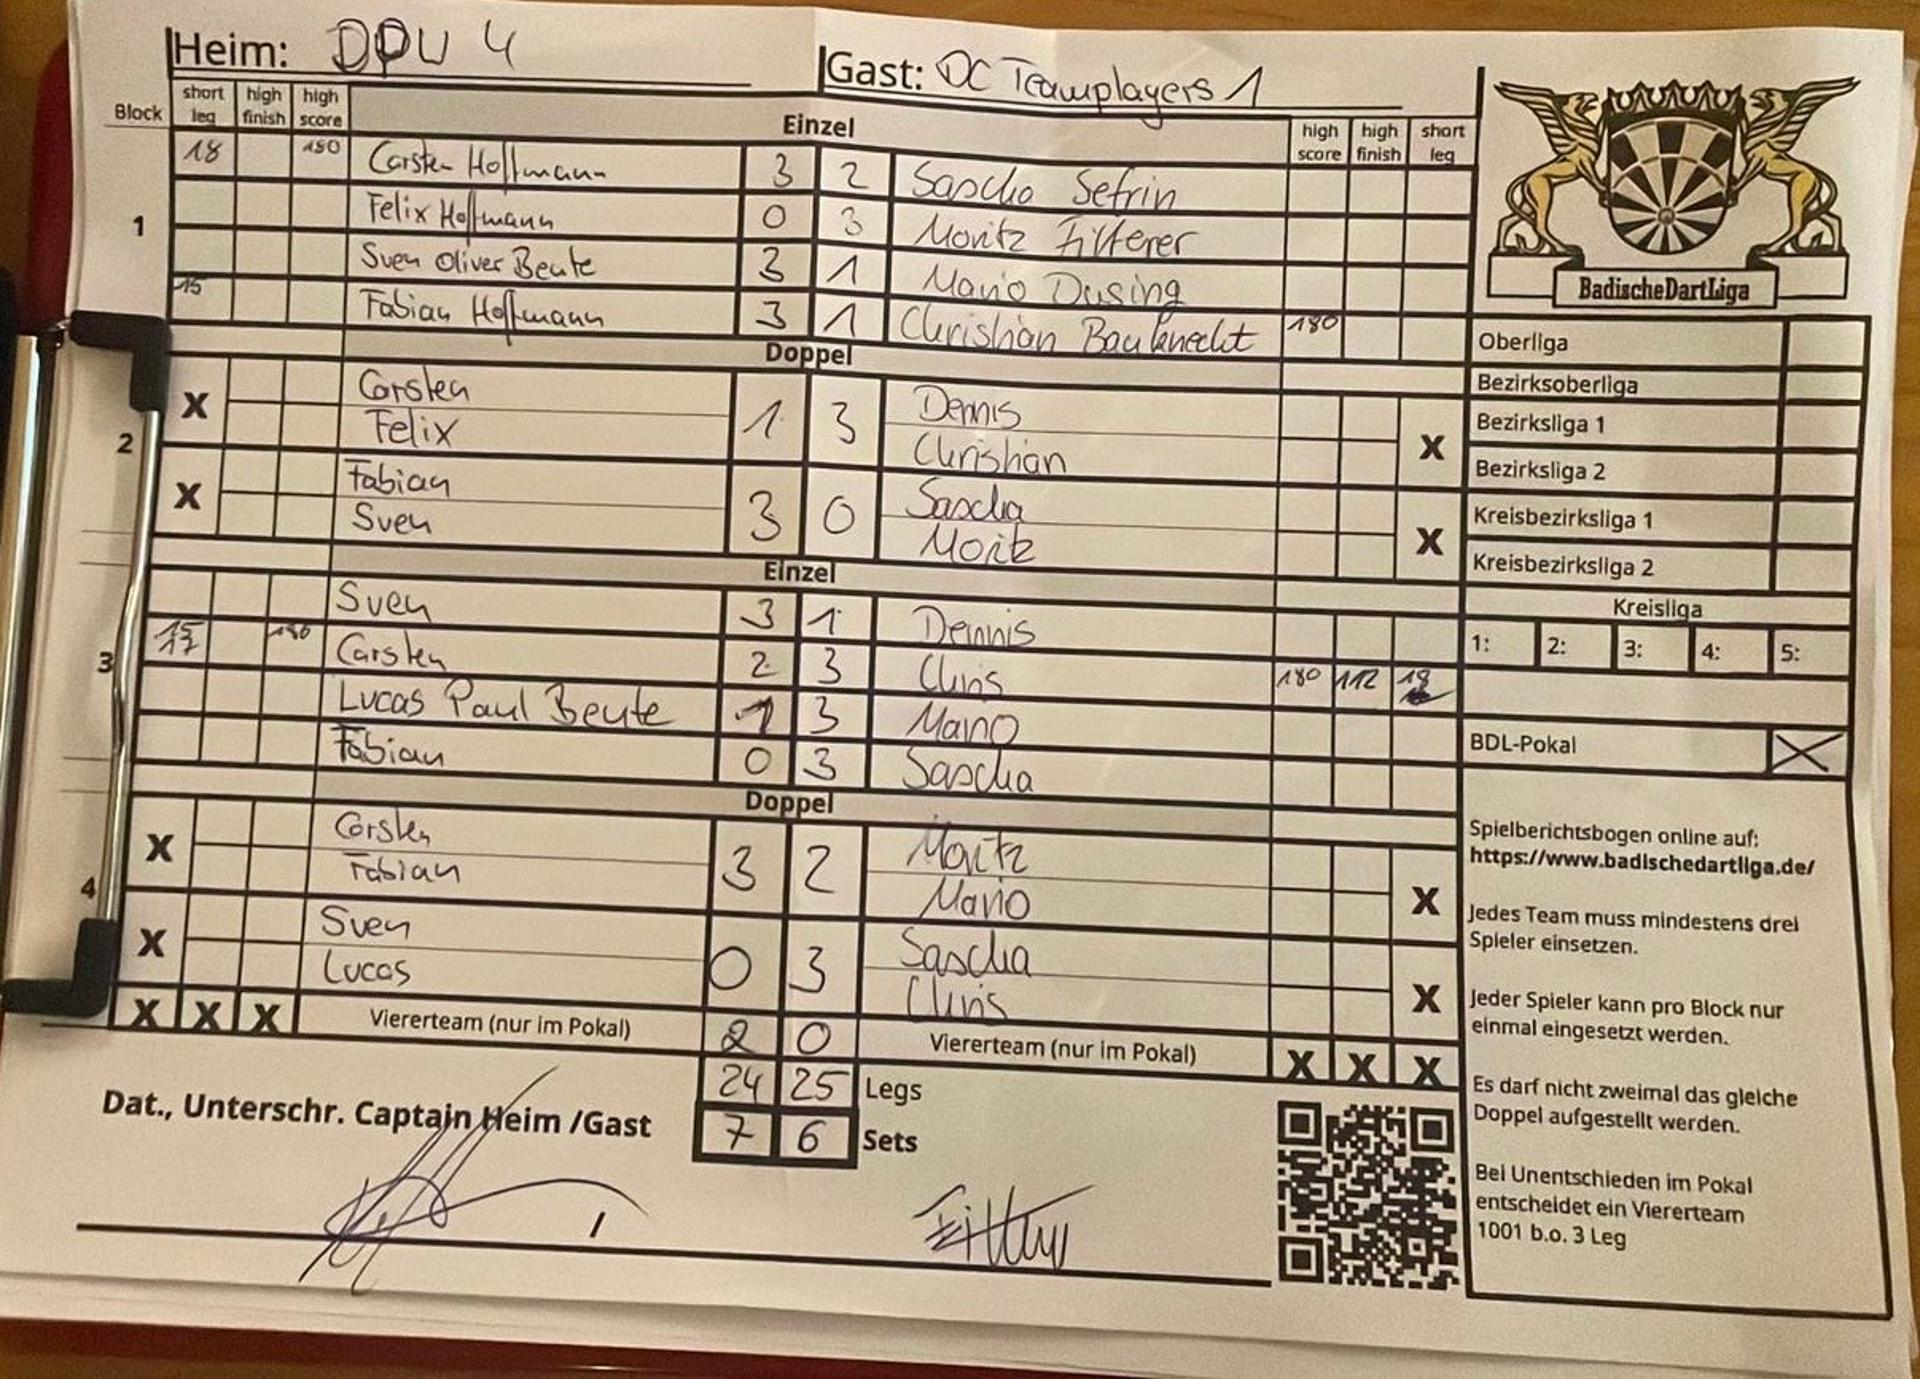 Heim: DPU 4
Gast: DC Teamplayers 1
Block short leg high finish high score Einzel high score high finish short leg
1
18 180 Carsten Hoffmann 3 2 Sascha Sefrin
Felix Hoffmann 0 3 Moritz Fitterer
Sven Oliver Beute 3 1 Mario Dusing
15 Fabian Hoffmann 3 1 Christian Bauknecht 180
Doppel
2
X Carsten 1 3 Dennis X
Felix Christian
X Fabian 3 0 Sascha X
Sven Moritz
Einzel
3
Sven 3 1 Dennis
15 17 180 Carsten 2 3 Chris 180 112 18
Lucas Paul Beute 1 3 Mario
Fabian 0 3 Sascha
Doppel
4
X Carsten 3 2 Moritz X
Fabian Mario
X Sven 0 3 Sascha X
Lucas Chris
X X X Viererteam (nur im Pokal) 2 0 Viererteam (nur im Pokal) X X X
24 25 Legs
7 6 Sets
Dat., Unterschr. Captain Heim /Gast
/
BadischeDartLiga
Oberliga
Bezirksoberliga
Bezirksliga 1
Bezirksliga 2
Kreisbezirksliga 1
Kreisbezirksliga 2
Kreisliga
1: 2: 3: 4: 5:
BDL-Pokal X
Spielberichtsbogen online auf:
https://www.badischedartliga.de/
Jedes Team muss mindestens drei
Spieler einsetzen.
Jeder Spieler kann pro Block nur
einmal eingesetzt werden.
Es darf nicht zweimal das gleiche
Doppel aufgestellt werden.
Bei Unentschieden im Pokal
entscheidet ein Viererteam
1001 b.o. 3 Leg